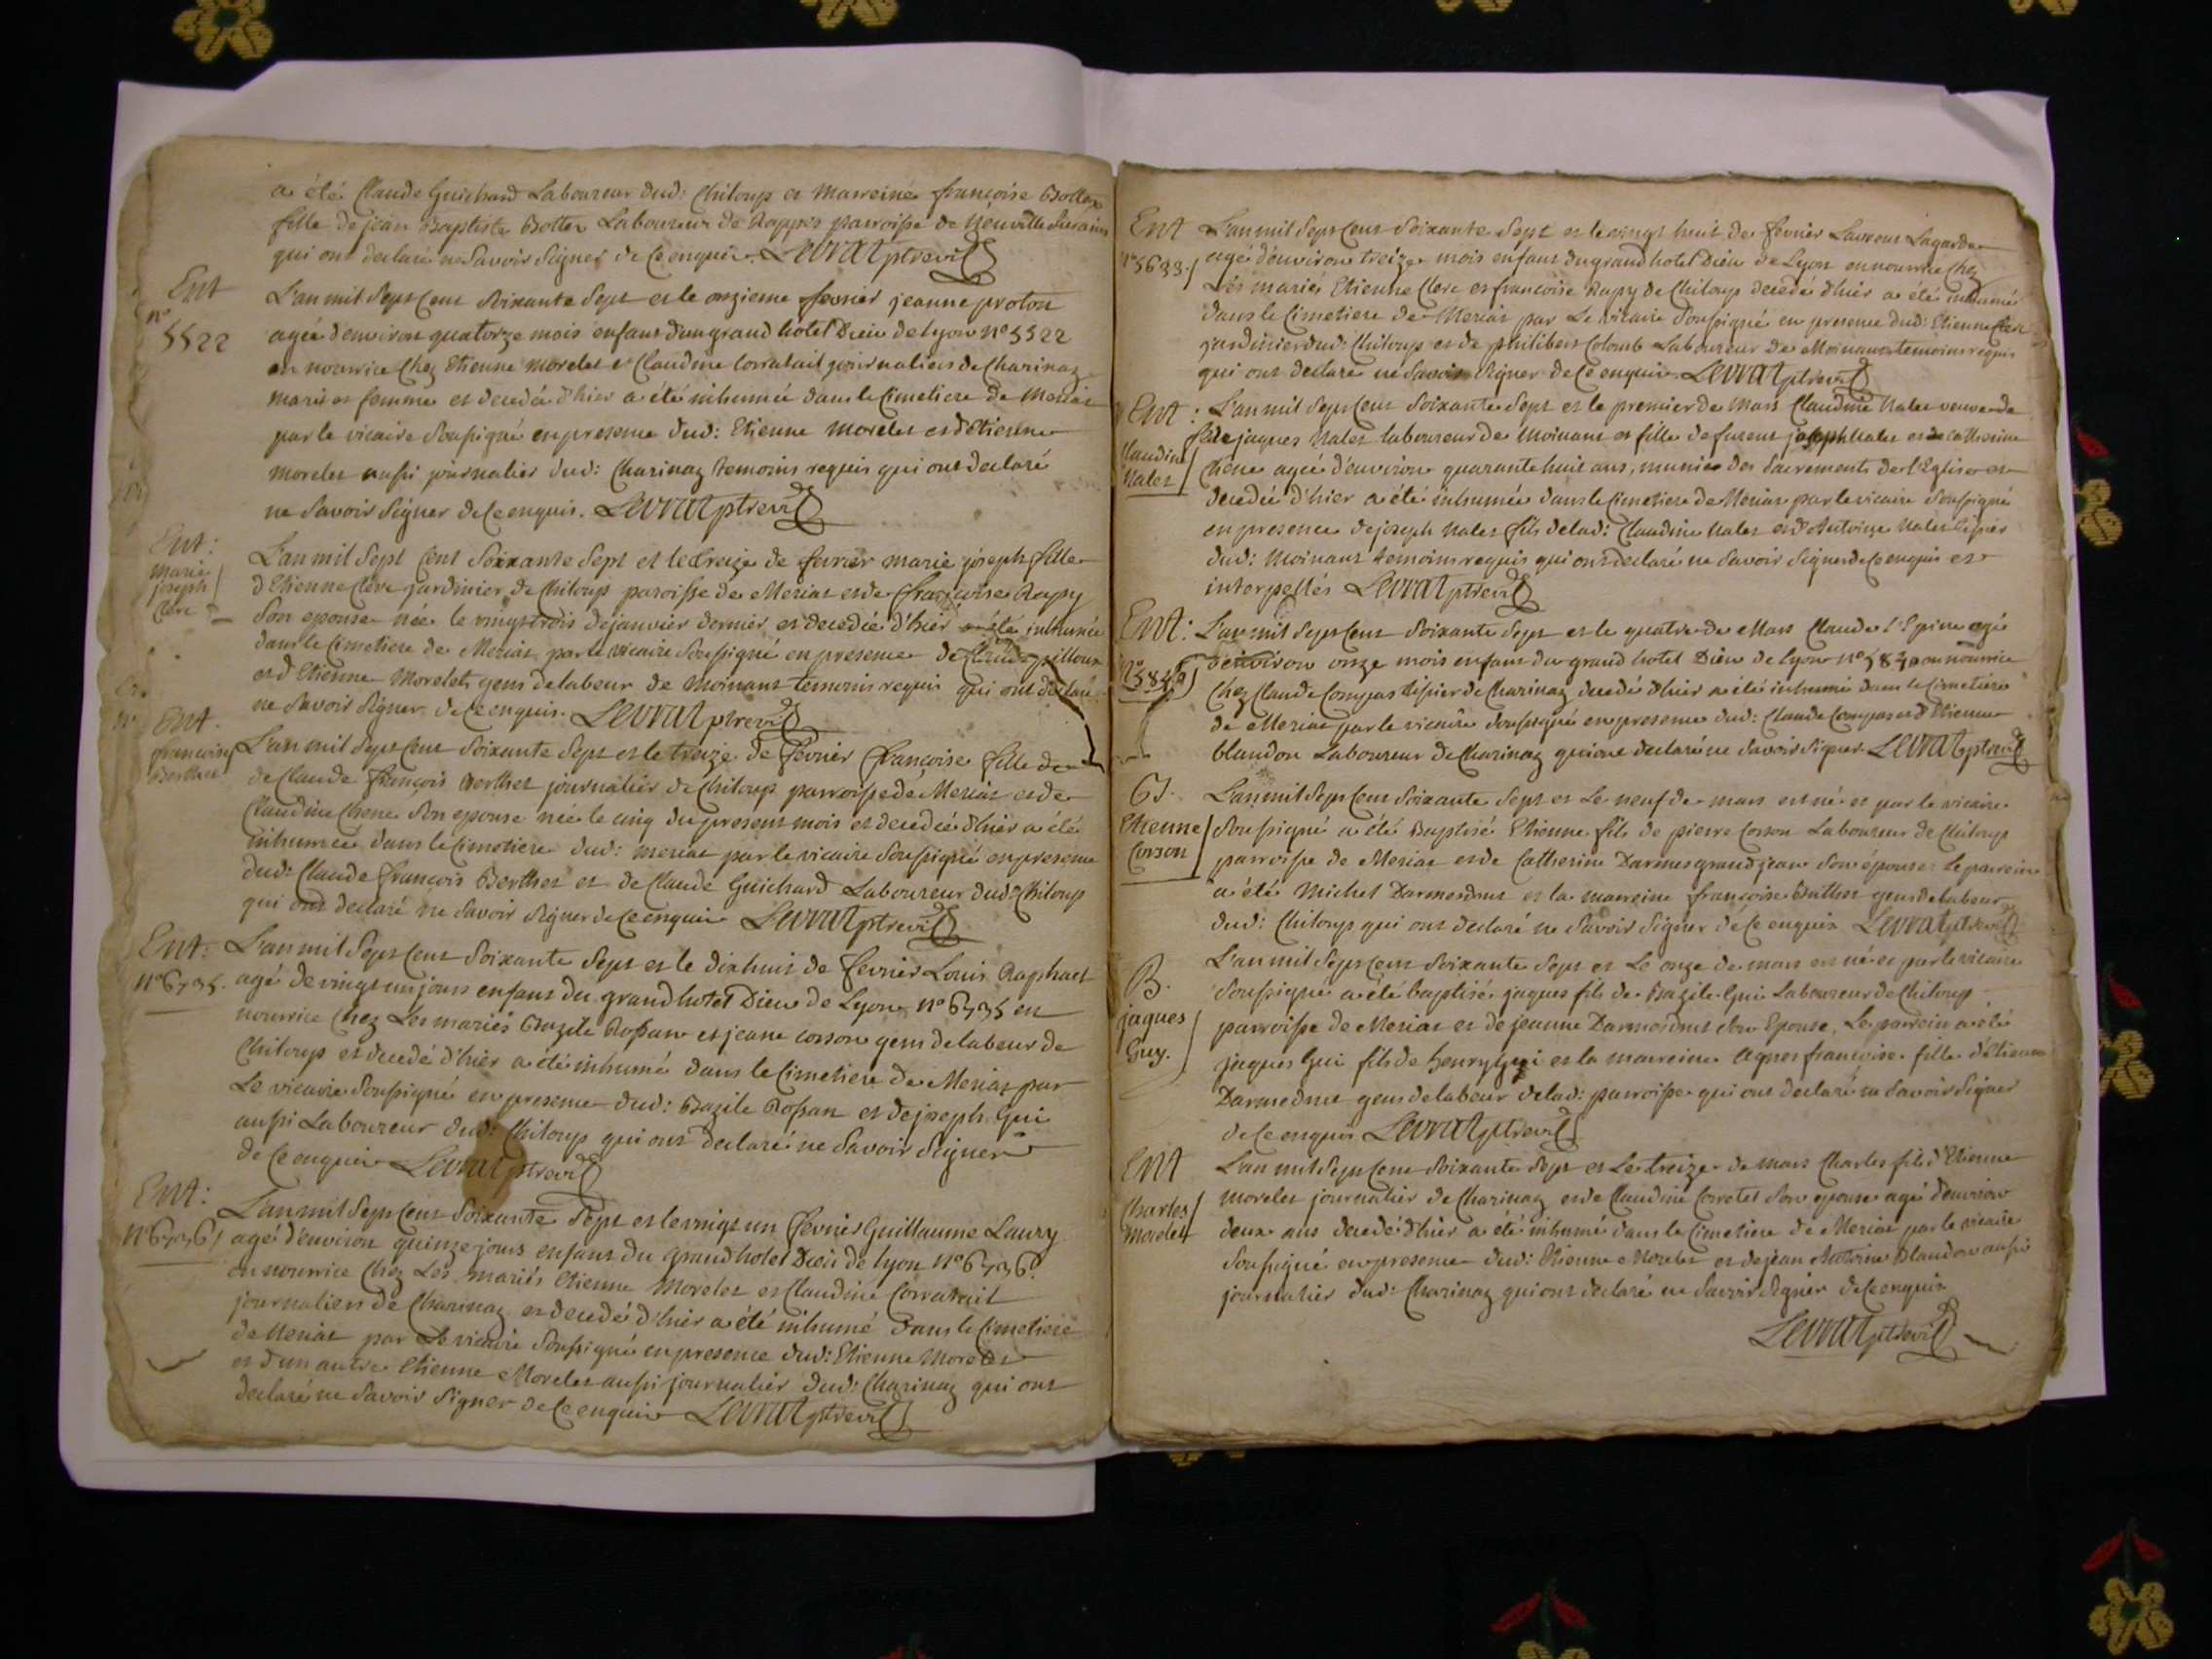 a été Claude Guichard Laboureur dud: Chiloup et Marreine françoise Bottex
fille de jean Baptiste Bottex Laboureur de Rappes parroisse de Neuville sur ains
qui ont declaré ne Savoir Signer de ce enquis. Levrat ptre vic
Ent
n°
5522
L'an mil Sept Cent Soixante Sept et le onzieme fevrier jeanne proton
agée d'environ quatorze mois enfant du grand hotel Dieu de lyon n° 5522
en nourrice Chez Etienne morelet et Claudine Corratail journaliers de Charinaz
marié et femme et decedée d'hier a été inhumée dans le Cimetiere de Meriat
par le vicaire Soussigné en presence dud: Etienne morelet et d'Etienne
morelet aussi journalier dud: Charinaz temoins requis qui ont declaré
ne Savoir Signer de Ce enquis. Levrat ptre vic
Ent:
marie
joseph
Clere
L'an mil Sept Cent Soixante Sept et le treize de fevrier marie joseph fille
d'Etienne Clere jardinier de Chiloup paroisse de Meriat et de françoise Rapy
Son epouse née le vingt trois de janvier dernier et decedée d'hier a été inhumée
dans le Cimetiere de Meriat par le vicaire Soussigné en presence de Claude pilloux
et d'Etienne Morelet gens de labeur de Moinant temoins requis qui ont declaré
ne Savoir Signer de Ce enquis. Levrat ptre vic
Ent.
francoise
Berthet
L'an mil Sept Cent Soixante Sept et le treize de fevrier françoise fille de
de Claude françois Berthet journalier de Chiloup parroisse de Meriat et de
Claudine Chene Son epouse née le cinq du present mois et decedée d'hier a été
inhumée dans le Cimetiere dud: meriat par le vicaire Soussigné en presence
dud: Claude françois Berthet et de Claude Guichard Laboureur dud: Chiloup
qui ont declaré ne Savoir Signer de Ce enquis Levrat ptre vic
Ent:
n° 6735.
L'an mil Sept Cent Soixante Sept et le dix huit de fevrier Louis Raphael
agé de vingt un jours enfant du grand hotel Dieu de Lyon n° 6735 en
nourrice Chez Les mariés Bazile Rossan et jeane corson gens de labeur de
Chiloup et decedé d'hier a été inhumé dans le Cimetiere de Meriat par
Le vicaire Soussigné en presence dud: Bazile Rossan et de joseph Gui
aussi Laboureur dud: Chiloup qui ont declaré ne Savoir Signer
de Ce enquis Levrat ptre vic
Ent:
n° 6736
L'an mil Sept Cent Soixante Sept et le vingt un fevrier Guillaume Laury
agé d'environ quinze jours enfant du grand hotel Dieu de lyon n° 6736.
en nourrice Chez Les mariés Etienne Morelet et Claudine Corratail
journaliers de Charinaz et decedé d'hier a été inhumé dans le Cimetiere
de Meriat par Le vicaire Soussigné en presence dud: Etienne Morelet
et d'un autre Etienne Morelet aussi journalier dud: Charinaz qui ont
declaré ne Savoir Signer de Ce enquis Levrat ptre vic
Ent
n° 5633.
L'an mil Sept Cent Soixante Sept et le vingt huit de fevrier Laurent Lagarde
agé d'environ treize mois enfant du grand hotel Dieu de Lyon en nourrice Chez
Les mariés Etienne Clere et francoise Rapy de Chiloup decedé d'hier a été inhumé
dans le Cimetiere de Meriat par Le vicaire Soussigné en presence dud: Etienne Clere
jardinier dud: Chiloup et de philibert Colomb Laboureur de Moinant temoins requis
qui ont declaré ne Savoir Signer de Ce enquis. Levrat ptre vic
Ent:
Claudine
Nalet
L'an mil Sept Cent Soixante Sept et le premier de Mars Claudine Nalet veuve de
de jaques Nalet laboureur de Moinant et fille de furent joseph Nalet et de catherine
Chene agée d'environ quarante huit ans, munie des Sacrements de l'Eglise et
decedée d'hier a été inhumée dans le Cimetiere de Meriat par le vicaire Soussigné
en presence de joseph Nalet fils de lad: Claudine Nalet et d'Antoine Nalet tissier
dud: Moinant temoins requis qui ont declaré ne Savoir Signer de Ce enquis et
interpellés Levrat ptre vic
Ent:
n° 5840
L'an mil Sept Cent Soixante Sept et le quatre de Mars Claude l'Epine agé
d'environ onze mois enfant du grand hotel Dieu de lyon n° 5840 en nourrice
Chez Claude Compas tissier de Charinaz decedé d'hier a été inhumé dans le Cimetiere
de Meriat par le vicaire Soussigné en presence dud: Claude Compas et d'Etienne
blandon Laboureur de Charinaz qui ont declaré ne Savoir Signer Levrat ptre vic
B.
Etienne
Corson
L'an mil Sept Cent Soixante Sept et Le neuf de mars est né et par le vicaire
Soussigné a été Baptisé Etienne fils de pierre Corson Laboureur de Chiloup
parroisse de Meriat et de Catherine Darmes grandjean Son épouse: Le parrein
a été Michel Darmedrut et la marreine françoise Buthet gens de labeur
dud: Chiloup qui ont declaré ne Savoir Signer de Ce enquis Levrat ptre vic
B.
jaques
Guy.
L'an mil Sept Cent Soixante Sept et Le onze de mars est né et par le vicaire
Soussigné a été baptisé jaques fils de Bazile Gui Laboureur de Chiloup
parroisse de Meriat et de jeanne Darmedrut Son Epouse, Le parrein a été
jaques Gui fils de henry Gui et la marreine Agnes francoise fille d'Etienne
Darmedrut gens de labeur de lad: parroisse qui ont declaré ne Savoir Signer
de Ce enquis Levrat ptre vic
Ent
Charles
Morelet
L'an mil Sept Cent Soixante Sept et Le treize de mars Charles fils d'Etienne
morelet journalier de Charinaz et de Claudine Corretel Son epouse agé d'environ
deux ans decedé d'hier a été inhumé dans le Cimetiere de Meriat par le vicaire
Soussigné en presence dud: Etienne Morelet et de jean Antoine Blandon aussi
journalier dud: Charinaz qui ont declaré ne Savoir Signer de Ce enquis
Levrat ptre vic